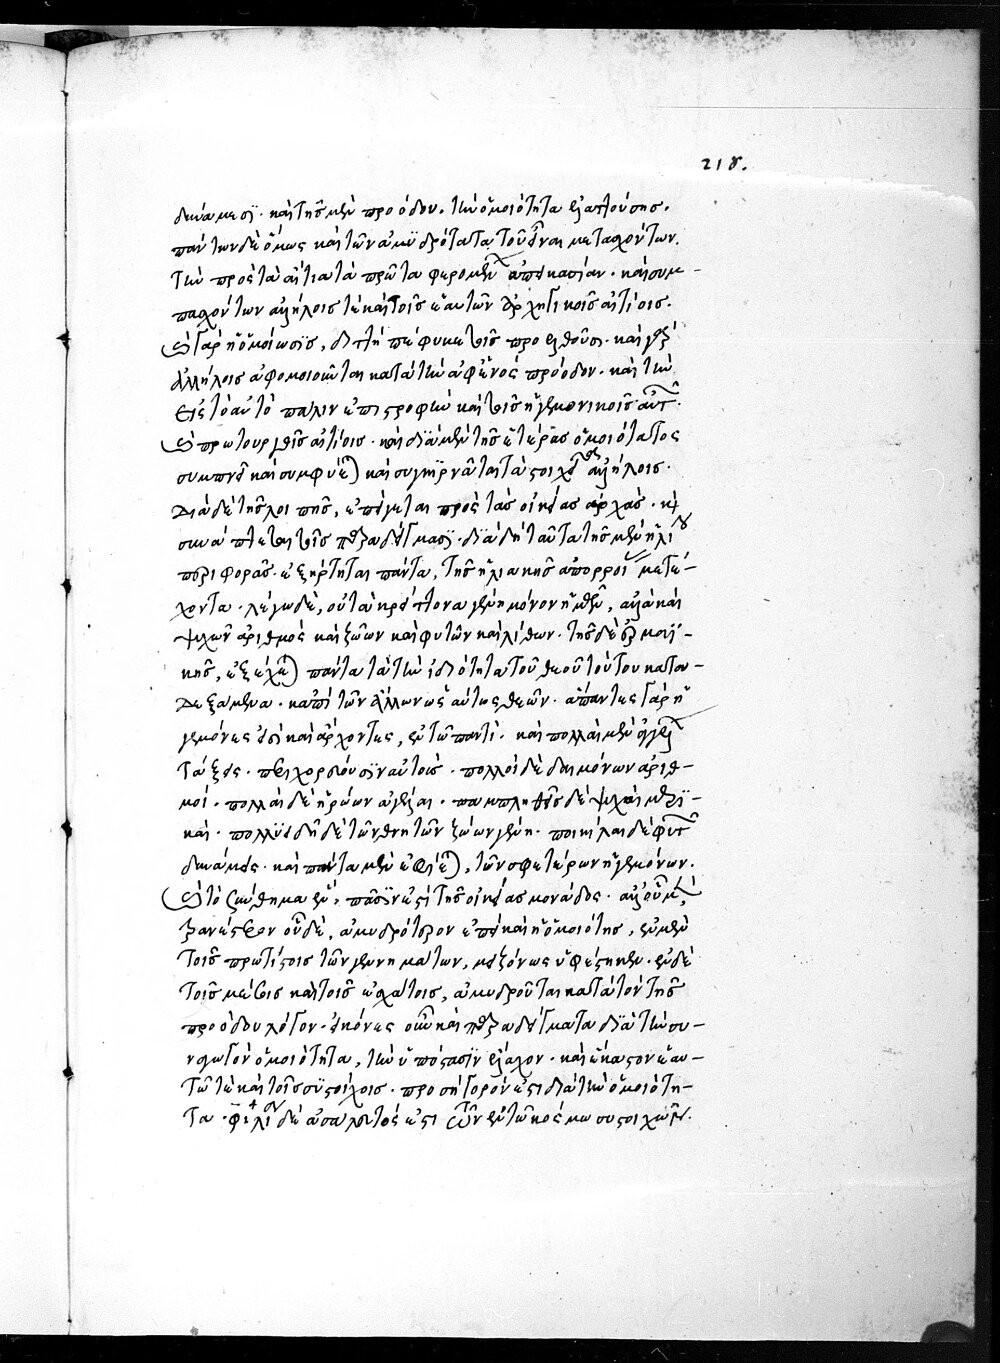 218.
δυνάμεσϊ· καὶ τῆς μὲν προόδου, τὴν ὁμοιότητα ἐλαττούσης·
πάντων δὲ ὅμως καὶ τῶν ἀμϋδρότατα τοῦ εἶναι μετασχόντων,
τὴν πρὸς τὰ αἴτια τὰ πρῶτα φερομένων ἀπεικασίαν· καὶ συμ-
πασχόντων ἀλλήλοις τὲ καὶ τοῖς ἑαυτῶν ἀρχηγικοῖς αἰτίοις·
ἡ γὰρ ἡ ὁμοίωσϊς, διττὴ πέφυκε τοῖς προελθοῦσι· καὶ γὰρ
ἀλλήλοις ἀφομοιοῦνται κατὰ τὴν ἀφ' ἑνὸς πρόοδον· καὶ τὴν
εἰς τὸ αὐτὸ πάλιν ἐπιστροφὴν καὶ τοῖς ἡγεμονικοῖς αὐτῶν
ἢ πρωτουργοῖς αἰτίοις· καὶ διὰ μὲν τῆς ἑτέρας ὁμοιότητος
συμπνεῖ καὶ συμφύεται καὶ συγκίρναται τὰ στοιχεῖα ἀλλήλοις·
διὰ δὲ τῆς λοιπῆς, ἐπάγεται πρὸς τὰς οἰκείας ἀρχάς· καὶ
συνάπτεται τοῖς παραδείγμασϊ· διὰ δὴ ταῦτα τῆς μὲν ἡλίου
περιφορᾶς ἐξήρτηται πάντα, τῆς ἡλιακῆς ἀπορροίας μετέ-
χοντα· λέγω δὲ, οὐ τὰ κρείττονα γένη μόνον ἡμῶν, ἀλλὰ καὶ
ψυχῶν ἀριθμὸς καὶ ζώων καὶ φυτῶν καὶ λίθων· τῆς δὲ ἑρμαϊ-
κῆς, ἐξέχεται πάντα τὰ τὴν ἰδιότητα τοῦ θεοῦ τούτου κατα-
δεξάμενα· κἀπὶ τῶν ἄλλων ὡσαύτως θεῶν· ἅπαντες γὰρ ἡ
γεμόνες εἰσὶ καὶ ἄρχοντες, ἐν τῷ παντί· καὶ πολλαὶ μὲν ἀγγέλων
τάξεις· περιχορεύουσϊν αὐτούς· πολλοὶ δὲ δαιμόνων ἀριθ-
μοί· πολλαὶ δὲ ἡρώων ἀγέλαι· παμπληθεῖς δὲ ψυχαὶ μερϊ-
καί· πολϋειδῆ δὲ τῶν θνητῶν ζώων γένη· ποικίλαι δὲ φυτῶν
δυνάμεις· καὶ πάντα μὲν ἐφίεται, τῶν σφετέρων ἡγεμόνων·
καὶ τὸ σύνθημα ἓν, πᾶσϊν ἐστὶ τῆς οἰκείας μονάδος· ἀλλ' οὗ μὲν,
τρανέστερον οὗ δὲ, ἀμυδρότερον ἐπεὶ καὶ ἡ ὁμοιότης, ἐν μὲν
τοῖς πρωτίστοις τῶν γεννημάτων, μειζόνως ὑφέστηκεν· ἐν δὲ
τοῖς μέσοις καὶ τοῖς ἐσχάτοις, ἀμυδροῦται κατὰ τὸν τῆς
προόδου λόγον· εἰκόνες οὖν καὶ παραδείγματα διὰ τὴν συ-
ναγωγὸν ὁμοιότητα, τὴν ὑπόστασϊν ἔλαχον· καὶ ἕκαστον ἑαυ-
τῷ τὲ καὶ τοῖς συστοίχοις προσήγορόν ἐστι διὰ τὴν ὁμοιότη-
τα· φιλία δὲ ἀσάλευτός ἐστι τῶν ἐν τῷ κόσμῳ συστοιχιῶν.